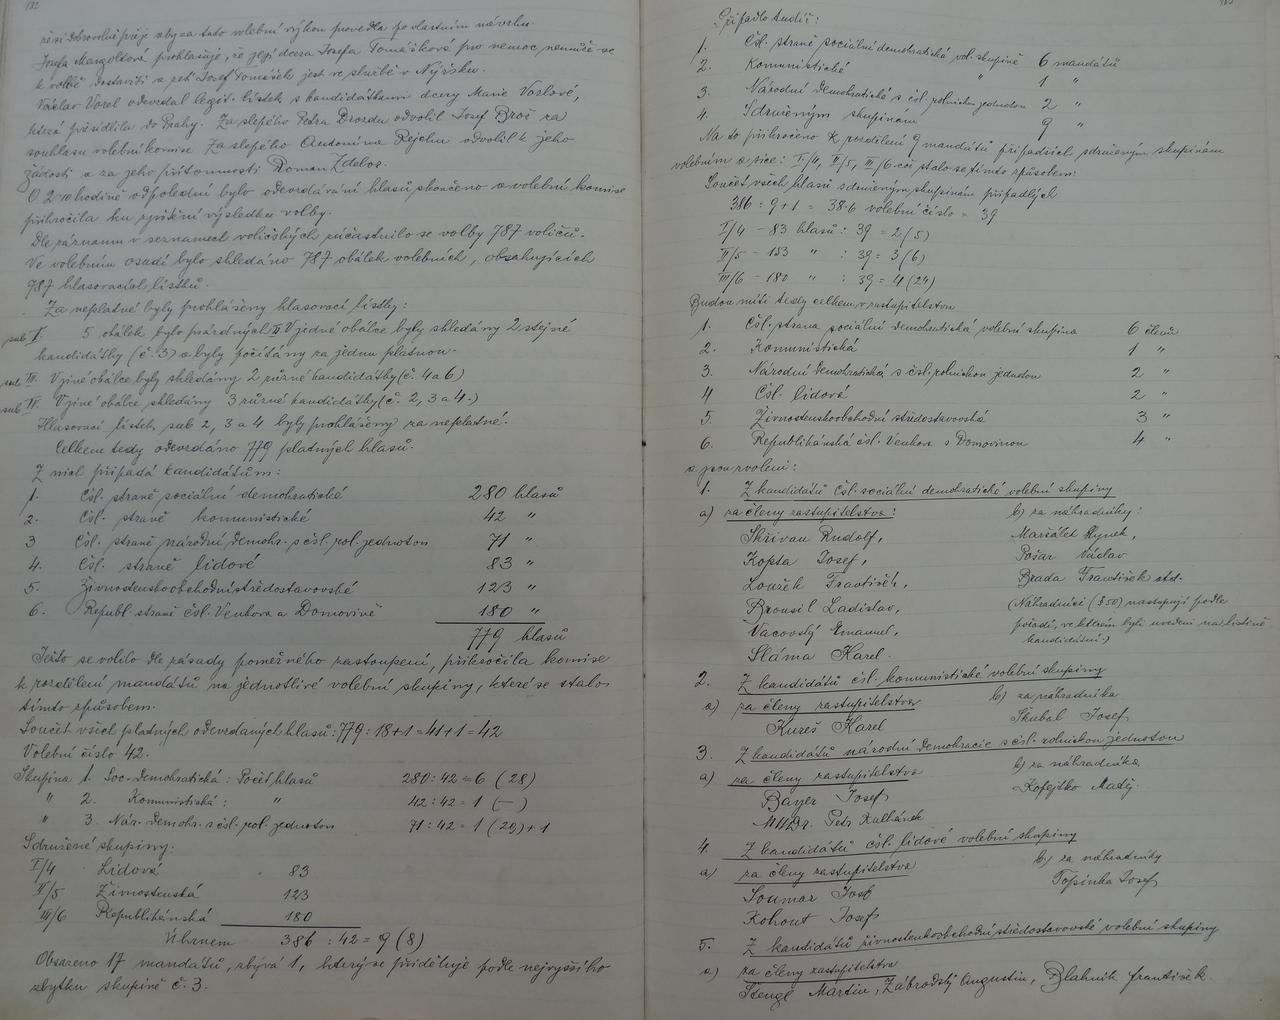 182
zové dobrovolně přeje aby za tato volební výkon provedla po vlastním návrhu.
Josefa Margoltová prohlašuje, že její dcera Josefa Tomášková pro nemoc nemůže se
k volbě dostaviti a zeť Josef Tomášek jest ve službě v Nýrsku.
Václav Vorel odevzdal legit. lístek s kandidátkami dcery Marie Voslové,
která přesídlila do Prahy. Za slepého Petra Drozda odvolil Josef Brož za
souhlasu volební komise. Za slepého Antonína Rejchu odvolil k jeho
žádosti a za jeho přítomnosti Roman Zdeboř.
O 2ré hodině odpolední bylo odevzdávání hlasů skončeno a volební komise
přikročila ku zjištění výsledku volby.
Dle záznamu v seznamech voličských zúčastnilo se volby 787 voličů.
Ve volebním osudí bylo shledáno 787 obálek volebních, obsahujících
787 hlasovacích lístků.
Za neplatné byly prohlášeny hlasovací lístky:
sub I. 5 obálek bylo prázdných II V jedné obálce byly shledány 2 stejné
kandidátky (č. 3) a byly počítány za jednu platnou.
sub III. V jiné obálce byly shledány 2 různé kandidátky (č. 4 a 6)
sub IV. V jiné obálce shledány 3 různé kandidátky (č. 2, 3 a 4.)
Hlasovací lístek sub 2, 3 a 4 byly prohlášeny za neplatné.
Celkem tedy odevzdáno 779 platných hlasů.
Z nich připadá kandidátům:
1. Čsl. straně sociální demokratické 280 hlasů
2. Čsl. straně komunistické 42 "
3 Čsl. straně národní demokr. s čsl. rol. jednotou 71 "
4. Čsl. straně lidové 83 "
5. Živnostenskoobchodní středostavovské 123 "
6. Republ. straně čsl. Venkova a Domovině 180 "
779 hlasů
Ježto se volilo dle zásady poměrného zastoupení, přikročila komise
k rozdělení mandátů na jednotlivé volební skupiny, které se stalo
tímto způsobem.
Součet všech platných odevzdaných hlasů: 779 : 18+1 = 41+1 = 42
Volební číslo 42.
Skupina 1. Soc. demokratická: Počet hlasů 280 : 42 = 6 (28)
" 2. Komunistická: " 42 : 42 = 1 (–)
" 3. Nár. demokr. s čsl. rol. jednotou 71 : 42 = 1 (29) + 1
Sdružené skupiny:
I/4 Lidová 83
II/5 Živnostenská 123
III/6 Republikánská 180
Úhrnem 386 : 42 = 9 (8)
Obsazeno 17 mandátů, zbývá 1, který se přiděluje podle nejvyššího
zbytku skupině č. 3.
Připadlo tudíž:
1. Čsl. straně sociální demokratické vol. skupině 6 mandátů
2. Komunistické " 1 "
3. Národní demokratické s čsl. rolnickou jednotou 2 "
4. Sdruženým skupinám 9 "
Na to přikročeno k rozdělení 9 mandátů připadších sdruženým skupinám
volebním a sice: I/4, II/5, III/6 což stalo se tímto způsobem:
Součet všech hlasů sdruženým skupinám připadlých
386 : 9+1 = 38·6 volební číslo = 39
I/4 – 83 hlasů : 39 = 2 (5)
II/5 – 153 " : 39 = 3 (6)
III/6 – 180 " : 39 = 4 (24)
Budou míti tedy celkem v zastupitelstvu
1. Čsl. strana sociální demokratická volební skupina 6 členů
2. Komunistická 1 "
3. Národní demokratická s čsl. rolnickou jednotou 2 "
4 Čsl. lidová 2 "
5 Živnostenskoobchodní středostavovská 3 "
6. Republikánská čsl. Venkova s Domovinou 4 "
a jsou zvoleni:
1. Z kandidátů čsl. sociální demokratické volební skupiny
a) za členy zastupitelstva: b) za náhradníky:
Skřivan Rudolf, Maršálek Hynek,
Kopta Josef, Pošar Václav
Loužek František, Brada František std.
Brousil Ladislav, (Náhradníci (§ 50) nastupují podle
Vacovský Emanuel, pořadí, ve kterém byli uvedeni na listině
Sláma Karel. kandidátní.)
2. Z kandidátů čsl. komunistické volební skupiny
a) za členy zastupitelstva b) za náhradníka
Kureš Karel Škubal Josef
3. Z kandidátů národní demokracie s čsl. rolnickou jednotou
a) za členy zastupitelstva b) za náhradníka
Bayer Josef Kofejtko Matěj.
MUDr. Petr Kulhánek
4. Z kandidátů čsl. lidové volební skupiny
a) za členy zastupitelstva b) za náhradníky
Soumar Josef Topinka Josef
Kohout Josef
5. Z kandidátů živnostenskoobchodní středostavovské volební skupiny
a) za členy zastupitelstva
Štengl Martin, Zábrodský Augustin, Blahník František.